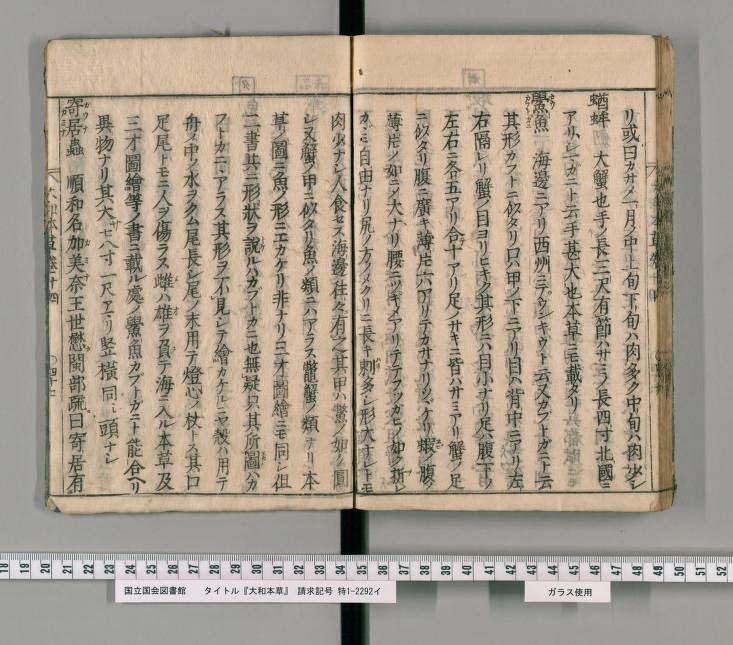 リ或曰カサメ一月ノ中上旬下旬ハ肉多ク中旬ハ肉少シ
蝤蛑 大蟹也手ノ長二三尺有節ハサミノ長四寸北國ニ
アリシマカニト云手甚大也本草ニモ載タリ
鱟魚 海邊ニアリ西州ニテウンキウト云又カブトガニト云
其形カフトニ似タリ口ハ甲ノ下ニアリ目ハ背中ニアリ左
右隔レリ蟹ノ目ヨリヒキク其形ニハ目小ナリ足ハ腹下ノ
左右ニ各五アリ合十アリ足ノサキニ皆ハサミアリ蟹ノ足
ニ似タリ腹ニ廣キ薄片六アリテカサナリツヾケリ蝦ノ腹ノ
薄片ノ如ニノ大ナリ腰ニツギメアリテテフツガヒノ如ク折レ
カヾミ自由ナリ尻ノ方ノメクリニ長キ刺多シ形大ナレトモ
肉少ナシ人食セス海邊往々有之其甲ハ鱉ノ如ク圓
シ又蟹ノ甲ニ似タリ魚ノ類ニハアラス鼈蟹ノ類ナリ本
草ノ圖ニ魚ノ形ニエカケリ非ナリ三才圖繪ニモ同シ但
二書共ニ形狀ヲ說ルハカブトカニ也無疑只其所圖ハカ
フトカニニアラス其形ヲ不見シテ繪カケルニヤ殻ハ用テ
舟ノ中ノ水ヲクム尾長シ尾ノ末用テ燈心ノ杖トス其口
足尾トモニ人ヲ傷ラス雌ハ雄ヲ負テ海ニ入ル本草及
三才圖繪等ノ書ニ載ル處ノ鱟魚カブトガニト能合ヘリ
異物ナリ其大サ七八寸一尺アマリ竪橫同シ頭ナシ
寄居蟲 順和名加美奈王世懋閩部疏曰寄居有
国立国会図書館 タイトル『大和本草』 請求記号 特1-2292イ
ガラス使用